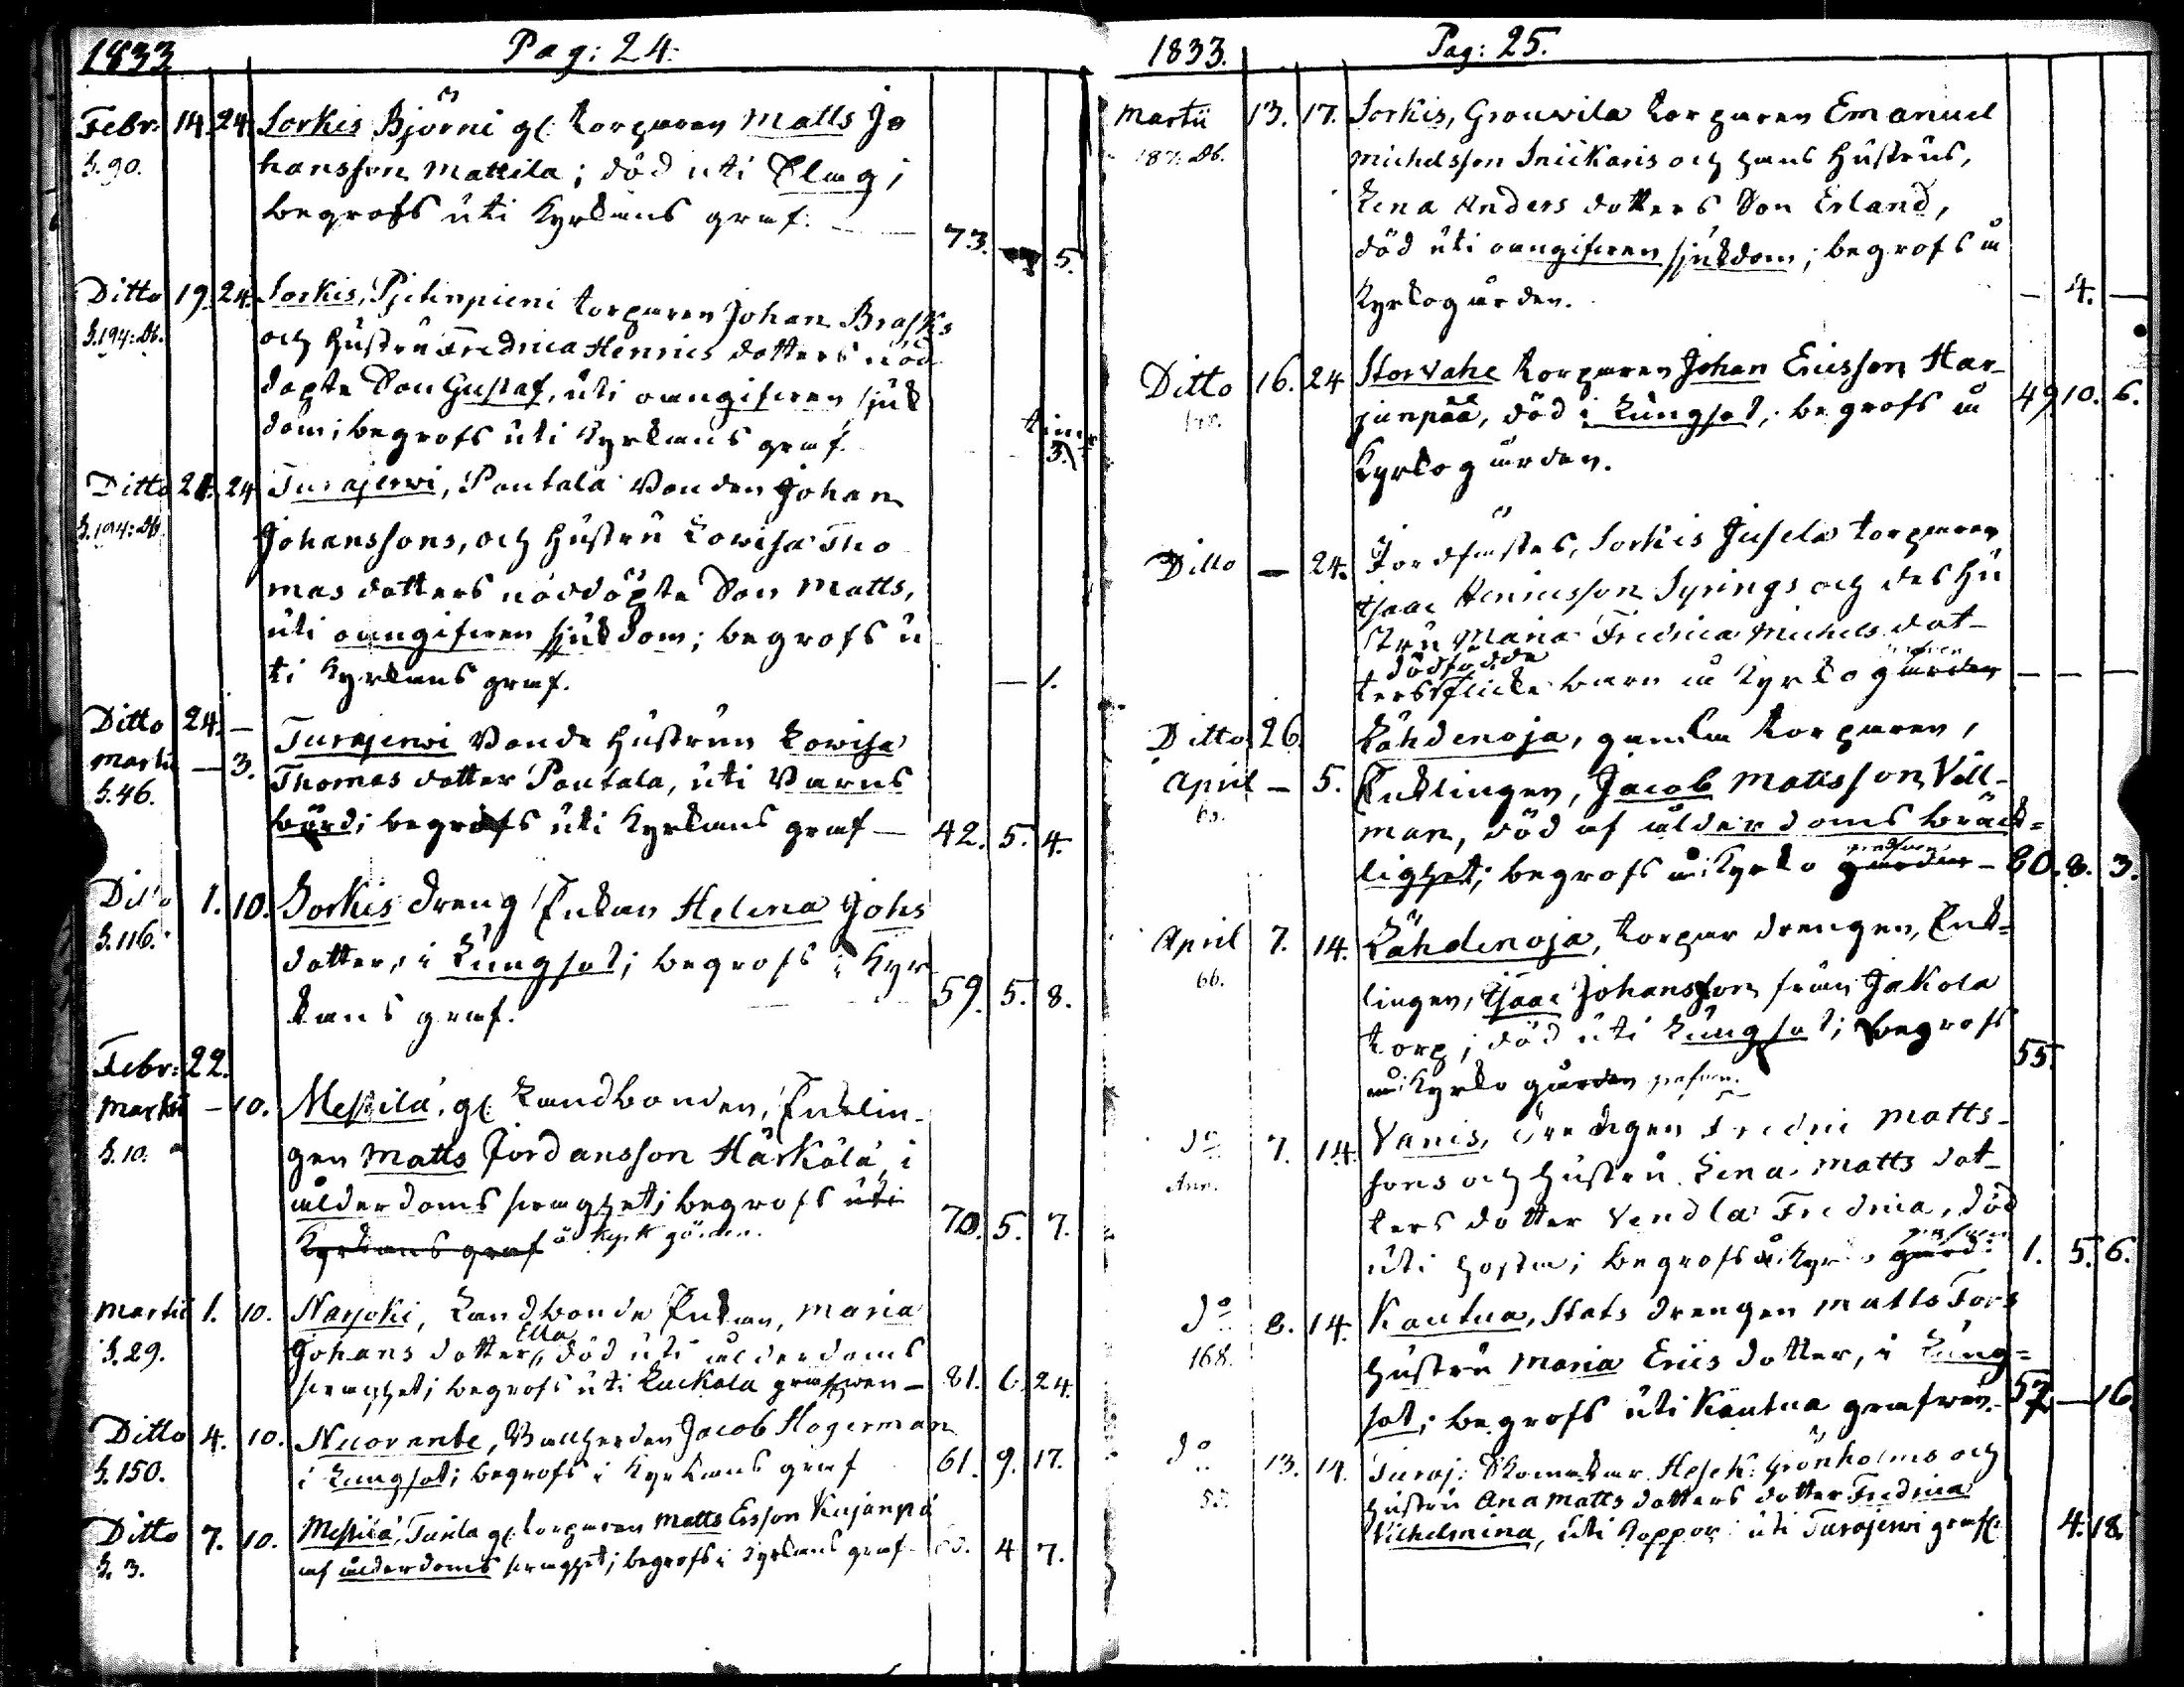 1833 Pag: 24.
Febr. 14. 24. Sorkis Björni gl. torparen Matts Jo
S. 90. hansson Mattila; död uti Slag;
begrofs uti Kyrkans graf. 73. 5.
Ditto 19. 24. Sorkis, Pjetinpieni torparen Johan Brasks
S. 194: Db. och hustru Fredrica Henrics dotters nöd
döpte Son Gustaf, uti oangifven sjuk
dom; begrofs uti Kyrkans graf. 3.
Ditto 21. 24 Turajerwi, Pantala Bonden Johan
S. 194: Db Johanssons, och hustru Lowisa Tho
mas dotters nöddöpte Son Matts,
uti oangifven sjukdom; begrofs u
ti Kyrkans graf. — 1.
Ditto 24. —
Martii — 3. Turajerwi Bonde hustrun Lowisa
S. 46. Thomas dotter Pantala, uti Barns
börd; begrofs uti Kyrkans graf — 42. 5. 4.
Ditto 1. 10. Sorkis dreng Enkan Helena Johs
S. 116. dotter, i Lungsot; begrofs i Kyr
kans graf. 59. 5. 8.
Febr: 22.
Martii — 10. Messilä, gl. Landbonden, Enklin-
S. 10. gen Matts Jordansson Härkälä, i
ålderdoms svaghet; begrofs uti
Kyrkans graf å Kyrk gården. 70. 5. 7.
Martii 1. 10. Narjoki, Landbonde Enkan, Maria
S. 29. Johans dotter, Ella död uti ålderdoms
svaghet; begrofs uti Luckola grafwen — 81. 6. 24.
Ditto 4. 10. Nuoranbe, Vallherden Jacob Hagerman
S. 150. i Lungsot; begrofs i Kyrkans graf 61. 9. 17.
Ditto 7. 10. Messilä, Tuiila gl. torparen Matts Ersson Kujanpä
S. 3. af ålderdoms svaghet; begrofs i Kyrkans graf 4 7.
1833. Pag: 25.
Martii 13. 17. Sorkis, Grouvila torparen Emanuel
187. Db. Michelsson Snickaris och hans hustrus,
Lena Anders dotters Son Erland,
död uti oangifven sjukdom; begrofs å
Kyrkogården. — 4. —
Ditto 16. 24 Storvahe torparen Johan Ericsson Har-
junpää, död i Lungsot; begrofs å 49. 10. 6.
Kyrkogården.
Ditto — 24. Jordfästes, Sorkis Jusela torparen
Isaac Henricsson Syrings och des hu
stru Maria Fredrica Michels dot-
ters dödfödde flicke barn å Kyrkogården — — —
Ditto 26. Lähdenoja, gamla torparen,
April — 5. Enklingen, Jacob Mattsson Vell-
man, död af ålderdoms bräck=
lighet; begrofs å Kyrko gården — 80. 8. 3.
April 7. 14. Lähdenoja, torpar drengen, Enk=
66. lingen, Isaac Johansson från Jakola
torp; död uti Lungsot; begrofs
å Kyrko gården 55.
do 7. 14. Vanis, drengen Fredric Matts-
sons och hustru Lena Matts dot-
ters dotter Vendla Fredrica, död
uti hosta; begrofs å Kyrko gård. 1. 5. 6.
do 8. 14. Kautua, Stats drengen Matts Fors
168. hustru Maria Erics dotter, i Lung=
sot; begrofs uti Kautua grafwen. 57 — 16.
do 13. 14. Turaj: Skomakar Grönholms och
hustru Ana Matts dotters dotter Fredrica
Vilhelmina, uti koppor; uti Turajerwi graf. 4. 18.